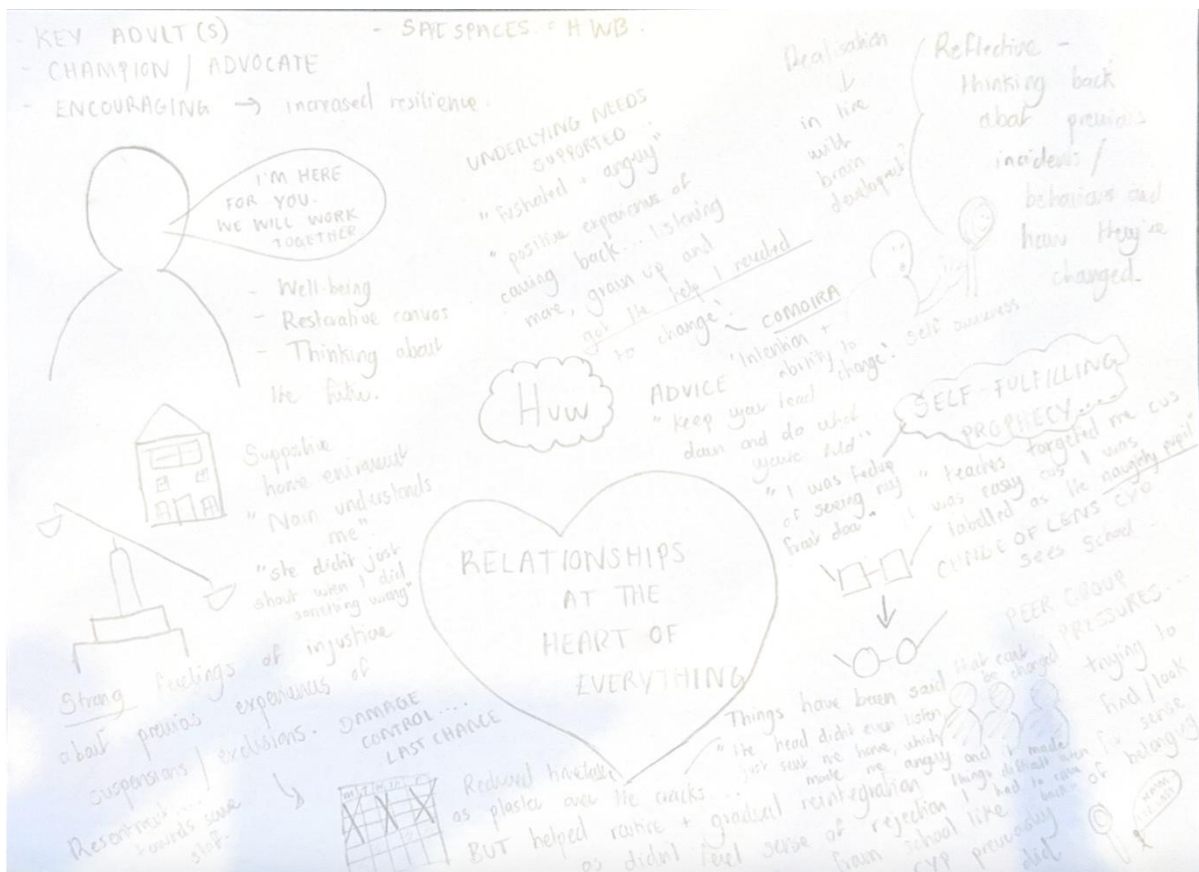 - KEY ADULT(S)
- CHAMPION / ADVOCATE
- ENCOURAGING → increased resilience.
- SAFE SPACES = HWB.
I'M HERE
FOR YOU.
WE WILL WORK
TOGETHER
- Well-being
- Restorative canvas
- Thinking about
the future.
UNDERLYING NEEDS
SUPPORTED
"fustrated + angry"
"positive experiences of
coming back... listening
more, grown up and
got the help I needed
to change".
Realisation
↓
in line
with
brain
development?
Reflective -
thinking back
about previous
incidents /
behaviours and
how they've
changed.
COMOIRA
"Intention +
ability to
change".
self awareness
Huw
ADVICE
"keep your head
down and do what
you're told"
SELF-FULFILLING
PROPHECY
"I was
of seeing my
front door"
"teachers targeted me cus
I was easy cus I was
labelled as the naughty pupil"
OF LENS CYP
sees school
Supportive
home environment
"Nain understands
me"
"she didn't just
shout when I did
something wrong"
RELATIONSHIPS
AT THE
HEART OF
EVERYTHING
Strong feelings of injustice
about previous experiences of
suspensions / exclusions.
Resentment...
towards some
staff.
DAMAGE
CONTROL....
LAST CHANCE
Reduced timetable
as plaster over the cracks...
BUT helped routine + gradual reintegration
as didn't feel sense of rejection
from school like
CYP previously
did
Things have been said that can't
be changed
"the head didn't even listen
just sent me home, which
made me angry and it made
things difficult when
I had to come
back"
PEER GROUP
PRESSURES...
trying to
find / look
for sense
of belonging